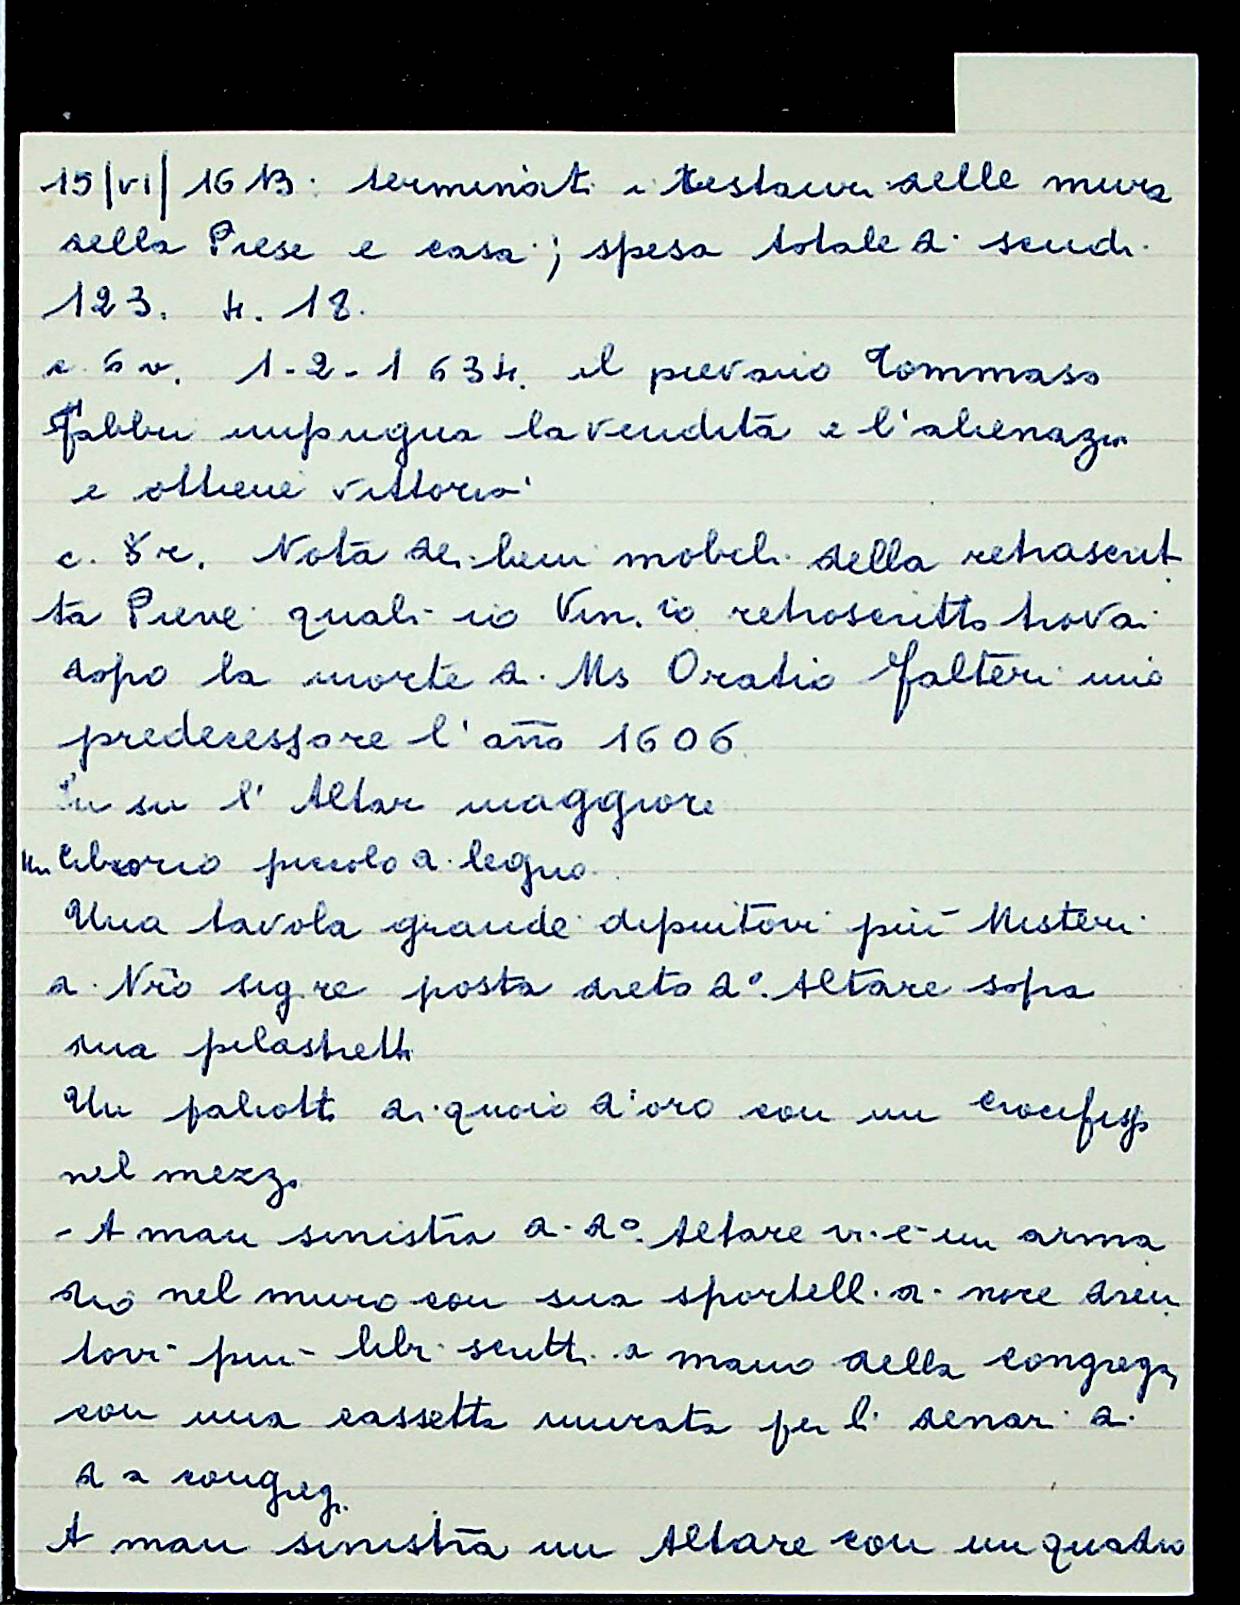 15/VI/1613: terminati i restauri delle mura
della Pieve e casa; spesa totale di scudi
123. 4. 18.
c. 6 v. 1-2-1634. il pievano Tommaso
Fabbri impugna la vendita e l'alienaz.
e ottiene vittoria
c. 8 r. Nota dei beni mobili della retroscrit
ta Pieve quali io Vin.io retroscritto trovai
dopo la morte di Ms Oratio Falteri mio
predecessore l'año 1606
In su l'Altar maggiore
Un ciborio piccolo di legno
Una tavola grande dipintovi più Misteri
di Nro Sig.re posta dreto d.o Altare sopra
sua pilastretti
Un paliotto di quoio d'oro con un crocifisso
nel mezzo
- A man sinistra di d.o Altare vi è un arma
dio nel muro con sua sportelli di noce dren
tovi più libri scritti a mano della congreg.
con una cassetta murata per li denari di
d a congreg.
A man sinistra un Altare con un quadro